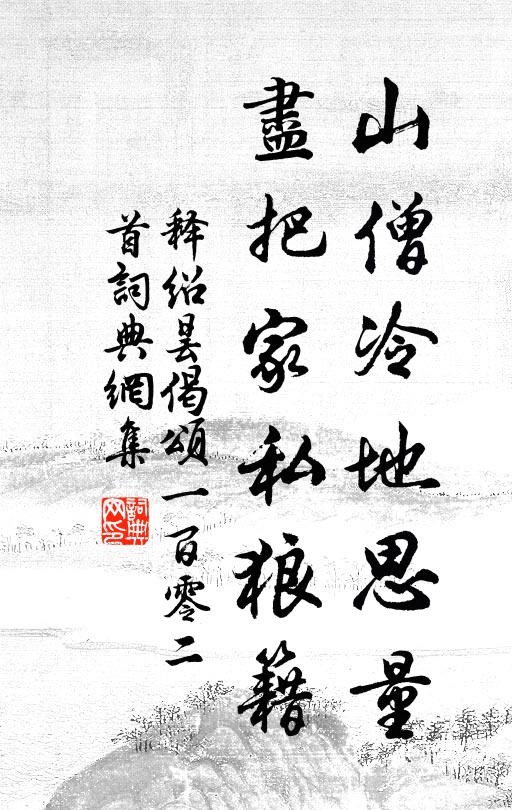 山僧冷地思量
盡把家私狼籍
释绍昙偈頌一百零二
首詞典網集
詞典
网印